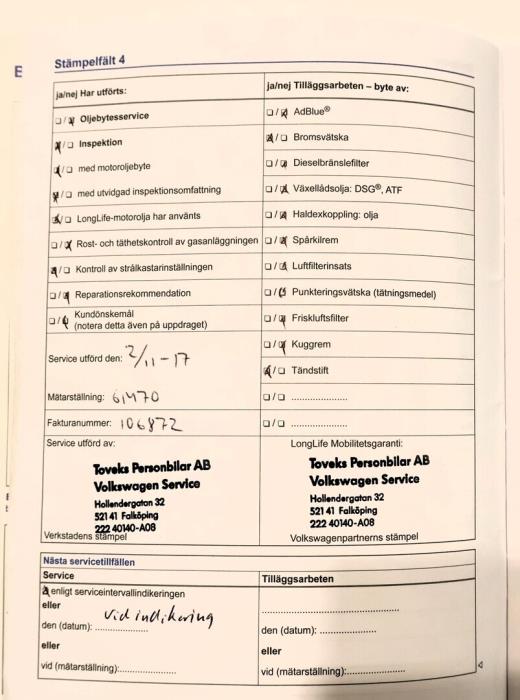 E
Stämpelfält 4
ja/nej Har utförts:
ja/nej Tilläggsarbeten – byte av:
☐/☒ Oljebytesservice
☐/☒ AdBlue®
☒/☐ Inspektion
☒/☐ Bromsvätska
☒/☐ med motoroljebyte
☐/☒ Dieselbränslefilter
☒/☐ med utvidgad inspektionsomfattning
☐/☒ Växellådsolja: DSG®, ATF
☒/☐ LongLife-motorolja har använts
☐/☒ Haldexkoppling: olja
☐/☒ Rost- och täthetskontroll av gasanläggningen
☐/☒ Spårkilrem
☒/☐ Kontroll av strålkastarinställningen
☐/☒ Luftfilterinsats
☐/☒ Reparationsrekommendation
☐/☒ Punkteringsvätska (tätningsmedel)
☐/☒ Kundönskemål
(notera detta även på uppdraget)
☐/☒ Friskluftsfilter
☐/☒ Kuggrem
Service utförd den: 2/11-17
☒/☐ Tändstift
Mätarställning: 61470
☐/☐ ....................
Fakturanummer: 106872
☐/☐ ....................
Service utförd av:
LongLife Mobilitetsgaranti:
Toveks Personbilar AB
Volkswagen Service
Hollendergatan 32
521 41 Falköping
222 40140-A08
Verkstadens stämpel
Toveks Personbilar AB
Volkswagen Service
Hollendergatan 32
521 41 Falköping
222 40140-A08
Volkswagenpartnerns stämpel
Nästa servicetillfällen
Service
Tilläggsarbeten
enligt serviceintervallindikeringen
eller
den (datum): vid indikering
eller
vid (mätarställning):....................
den (datum): ....................
eller
vid (mätarställning):....................